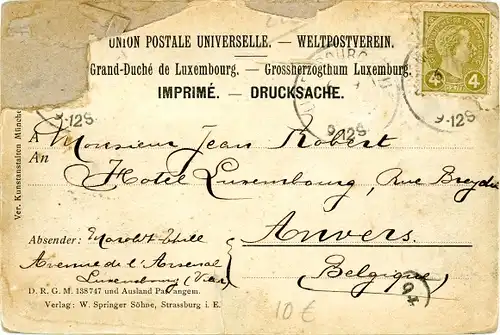 UNION POSTALE UNIVERSELLE. — WELTPOSTVEREIN.
Grand-Duché de Luxembourg. — Grossherzogthum Luxemburg.
IMPRIMÉ. — DRUCKSACHE.
4 4
9-12S
9-12S
9-12S
A Monsieur Jean Robert
An
Hotel Luxembourg, Rue Breydel
Anvers.
(Belgique)
Absender:
Avenue de l'Arsenal
Luxembourg (Ville)
D. R. G. M. 138747 und Ausland Pat. angem.
Verlag: W. Springer Söhne, Strassburg i. E.
Ver. Kunstanstalten München
10 €